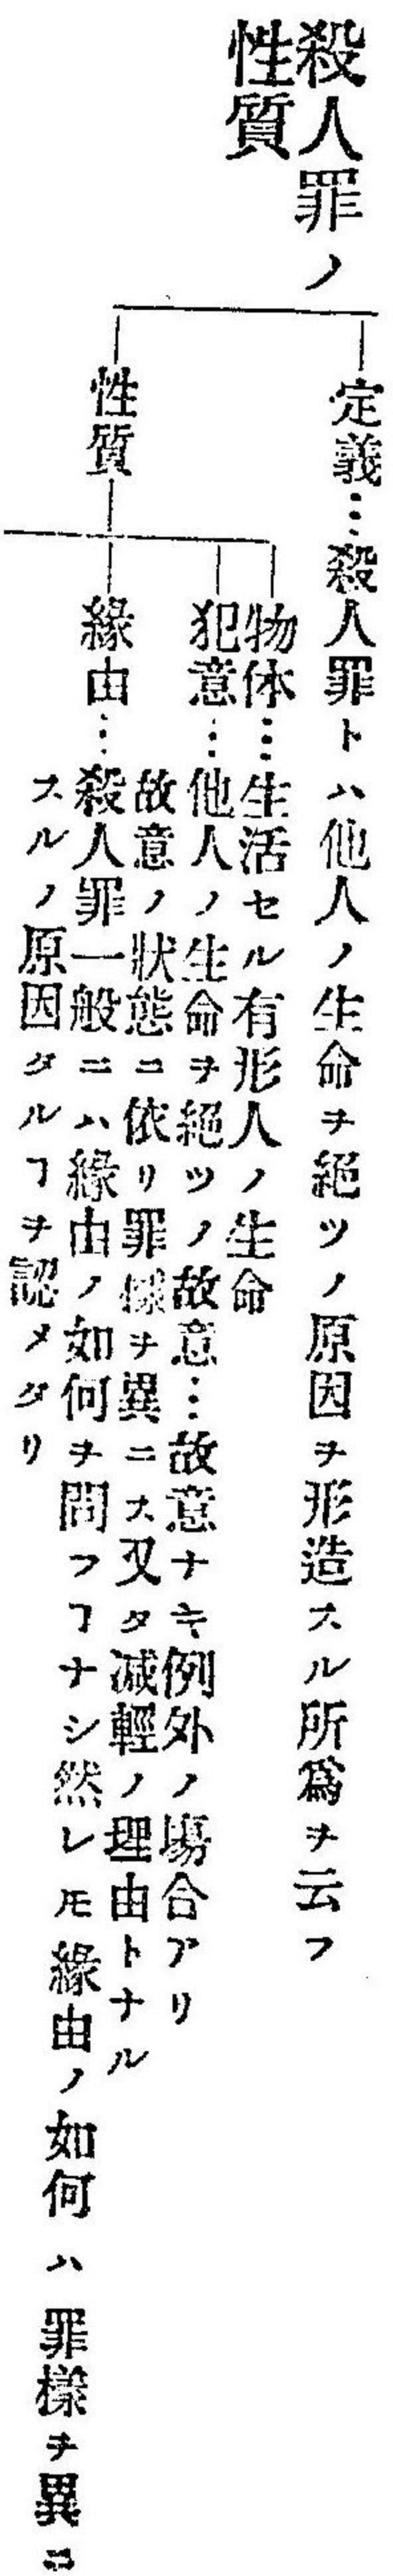 殺人罪ノ
性質
定義…殺人罪トハ他人ノ生命ヲ絕ツノ原因ヲ形造スル所爲ヲ云フ
性質
物体…生活セル有形人ノ生命
犯意…他人ノ生命ヲ絕ツノ故意…故意ナキ例外ノ塲合アリ
故意ノ狀態ニ依リ罪樣ヲ異ニス又タ減輕ノ理由トナル
緣由…殺人罪一般ニハ緣由ノ如何ヲ問フヿナシ然レ𪜈緣由ノ如何ハ罪樣ヲ異ニ
スルノ原因タルヿヲ認メタリ